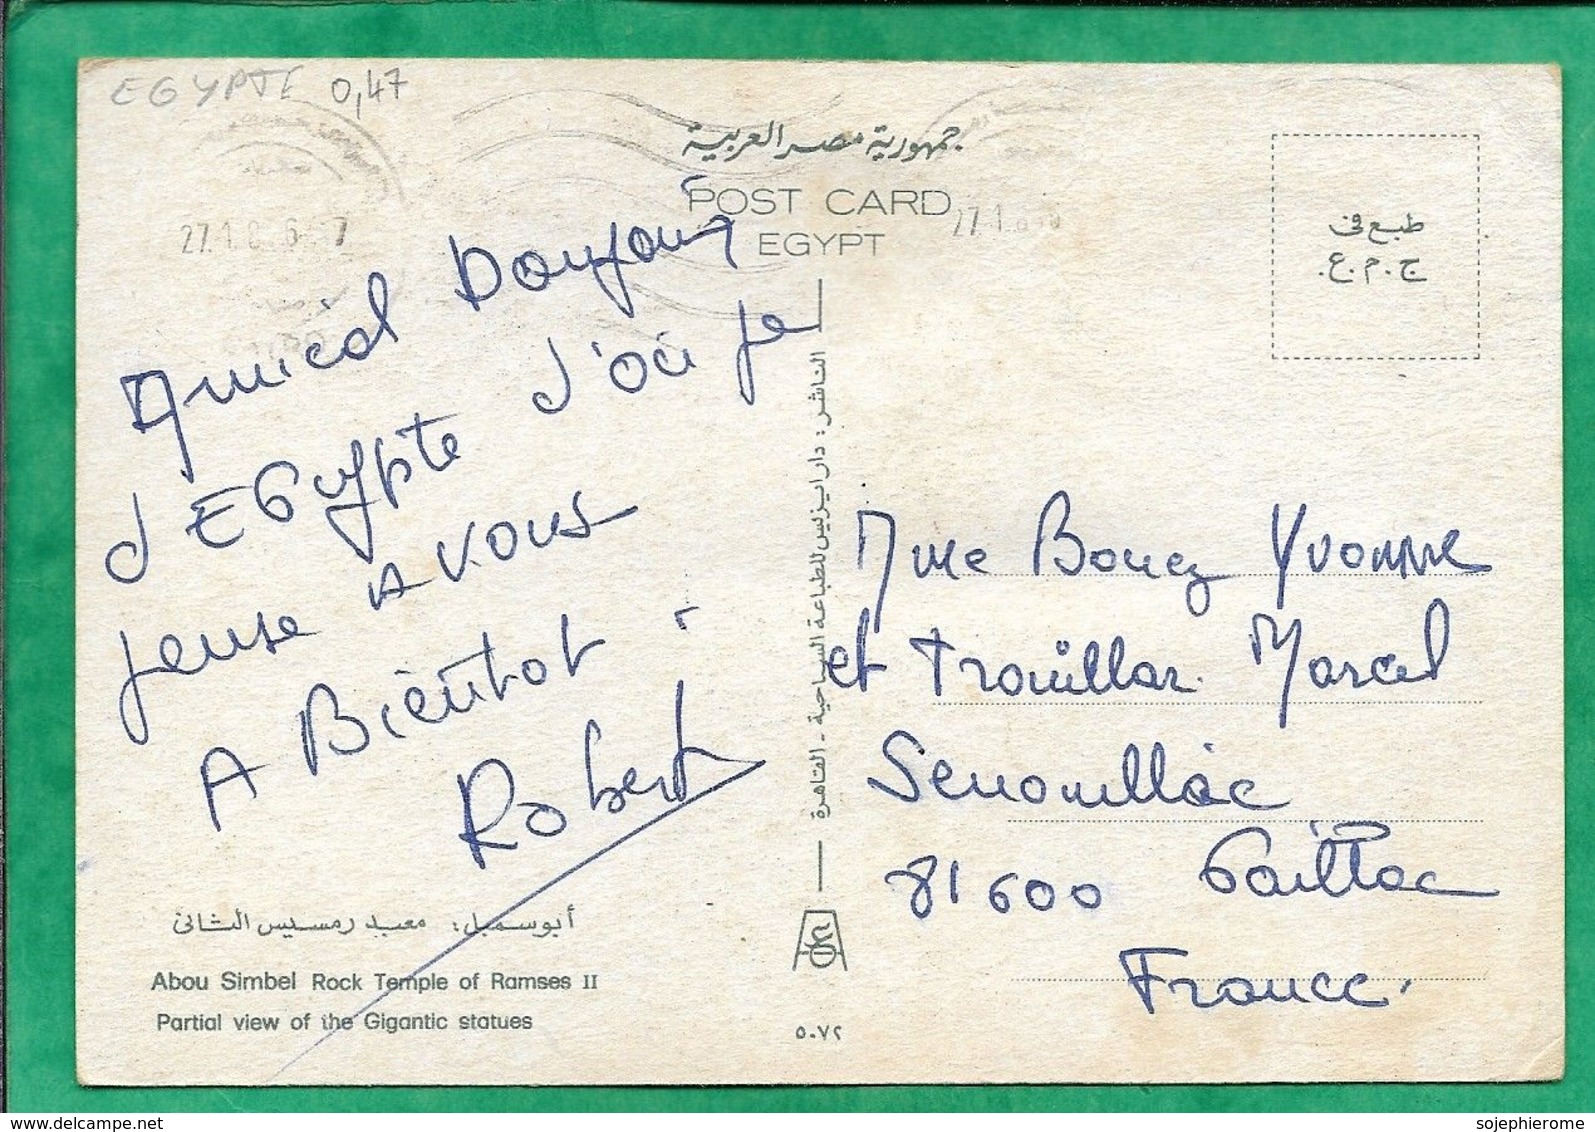 EGYPTE 0,47
جمهورية مصر العربية
POST CARD
EGYPT
طبع في
ج.م.ع.
Amical Bonjour
d'EGypte d'où je
pense A vous
A Bientot
Robert
الناشر: دار ايزيس للطباعة السياحية - القاهرة
Mme Bouez Yvonne
et Trouillar Marcel
Senouillac
81600 Gaillac
France.
أبو سمبل: معبد رمسيس الثاني
Abou Simbel Rock Temple of Ramses II
Partial view of the Gigantic statues
٥٠٧٢
www.delcampe.net
sojephierome